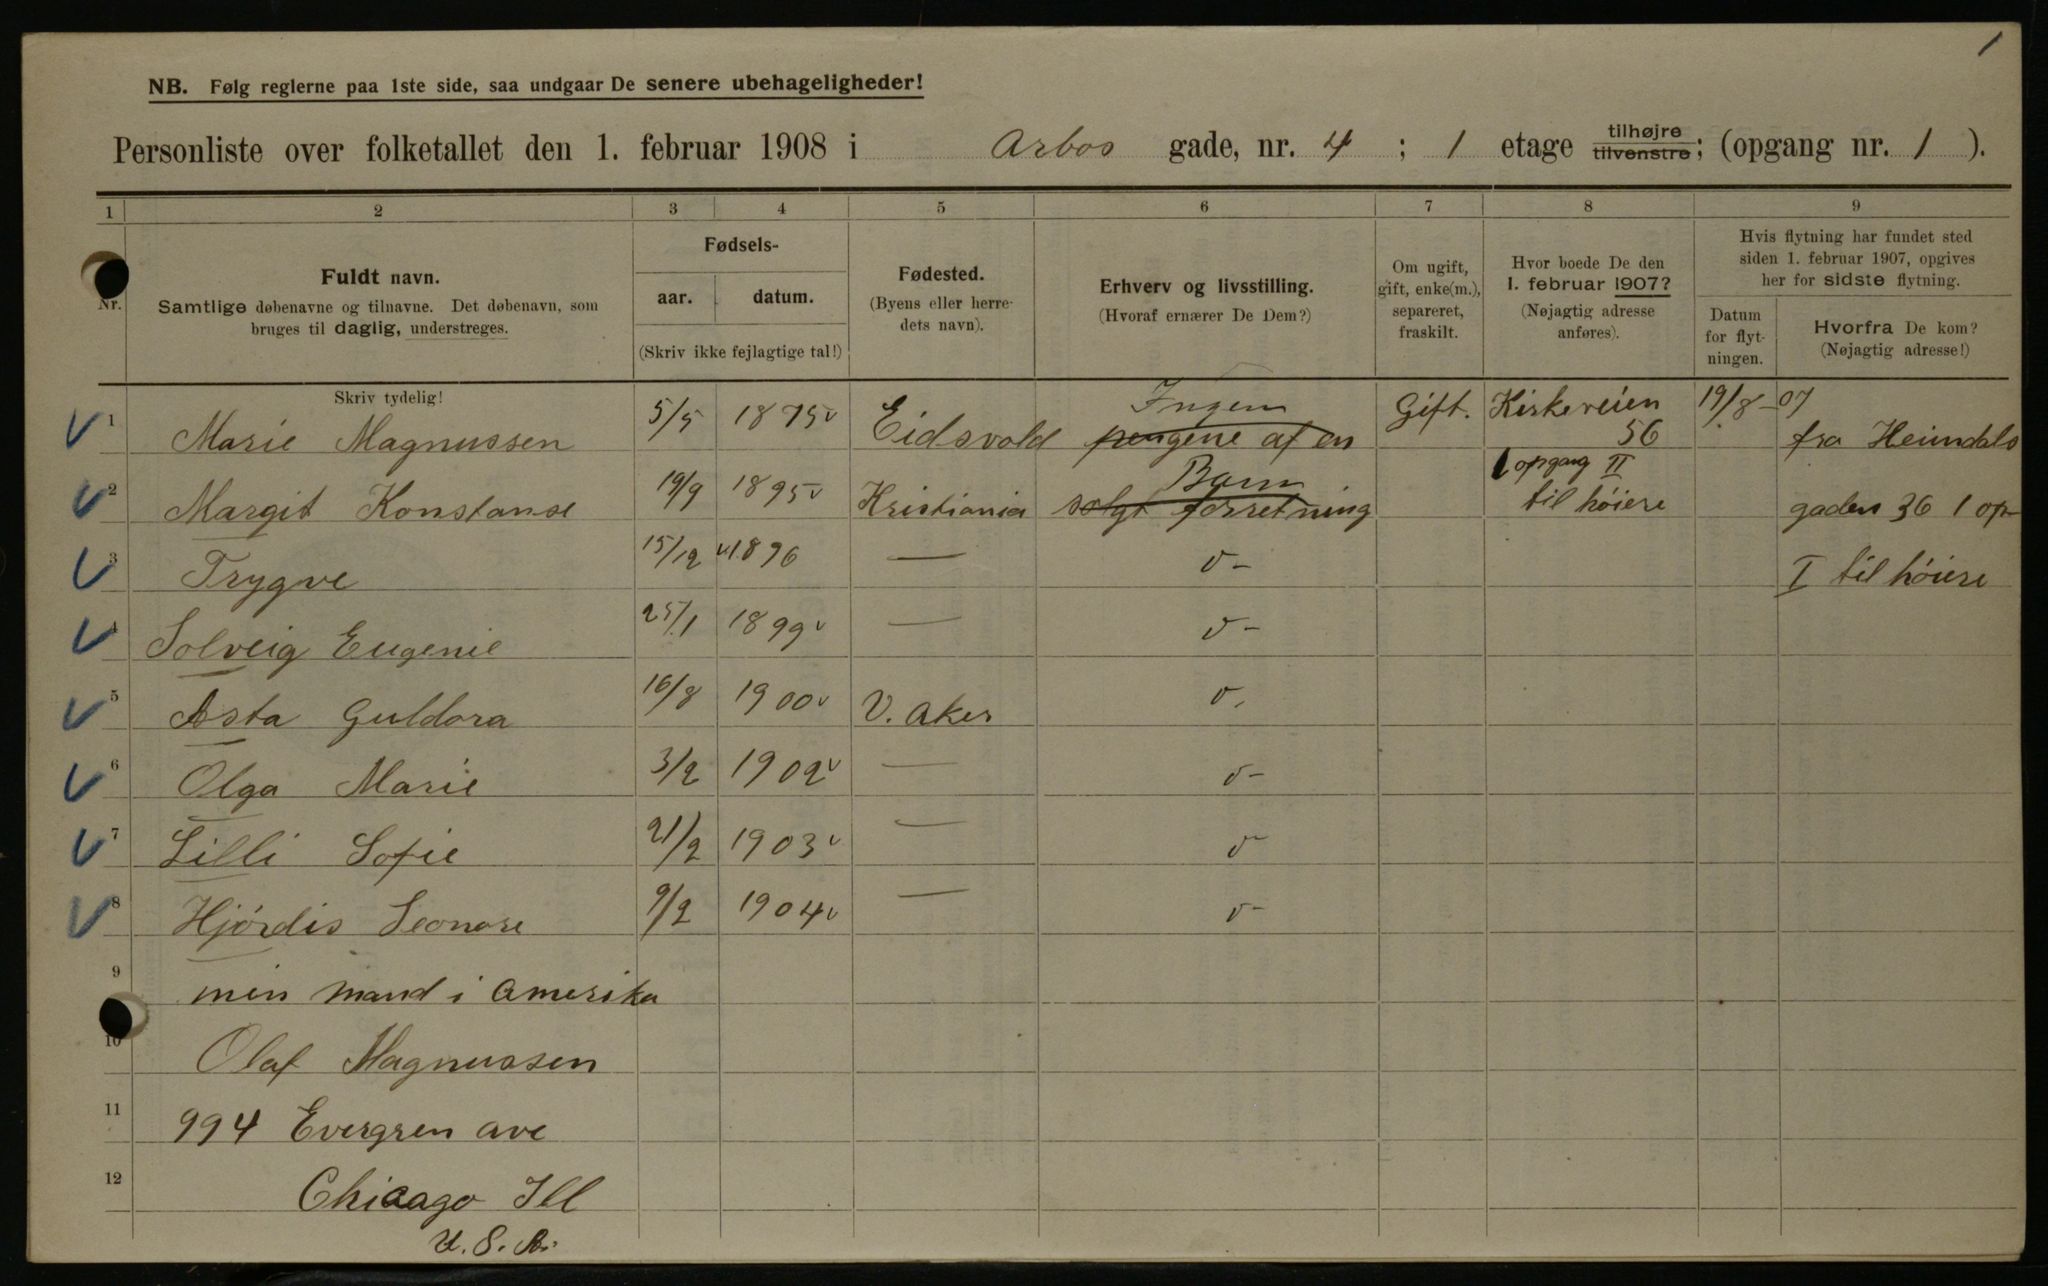 1
NB. Følg reglerne paa 1ste side, saa undgaar De senere ubehageligheder!
Personliste over folketallet den 1. februar 1908 i Arbos gade, nr. 4 ; 1 etage tilhøjre tilvenstre; (opgang nr. 1 ).
1 2 3 4 5 6 7 8 9
Nr.
Fuldt navn.
Samtlige døbenavne og tilnavne. Det døbenavn, som
bruges til daglig, understreges.
Skriv tydelig!
Fødsels-
aar. datum.
(Skriv ikke fejlagtige tal!)
Fødested.
(Byens eller herre-
dets navn).
Erhverv og livsstilling.
(Hvoraf ernærer De Dem?)
Om ugift,
gift, enke(m.),
separeret,
fraskilt.
Hvor boede De den
1. februar 1907?
(Nøjagtig adresse
anføres).
Hvis flytning har fundet sted
siden 1. februar 1907, opgives
her for sidste flytning.
Datum
for flyt-
ningen.
Hvorfra De kom?
(Nøjagtig adresse!)
1 Marie Magnussen 5/5 1875 Eidsvold Ingen pengene af en Gift. Kirkeveien 56 19/8-07 fra Heimdals
2 Margit Konstanse 19/9 1895 Kristiania Barn solgt forretning 1 opgang II til høiere gaden 36 1 op-
3 Trygve 15/12 1896 — v- I til høiere
4 Solveig Eugenie 25/1 1899 — v-
5 Asta Guldora 16/8 1900 V. Aker v.
6 Olga Marie 3/2 1902 — v-
7 Lilli Sofie 21/2 1903 — v
8 Hjørdis Leonore 9/2 1904 — v-
9 min mand i Amerika
10 Olaf Magnussen
11 994 Evergren ave
12 Chicago Ill
U. S. A.